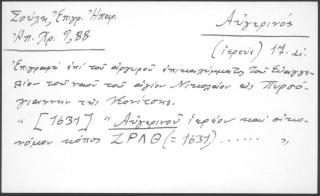 Σούλης, Ἐπιγρ. Ἠπειρ.
Ἠπ. Χρ. 9, 88
Αὐγερινός
(ἱερεύς) 17. αἰ.
Ἐπιγραφὴ ἐπὶ τοῦ ἀργυροῦ ἐπικαλύμματος τοῦ Εὐαγγε-
λίου τοῦ ναοῦ τοῦ ἁγίου Νικολάου τῆς Πυρσό-
γιαννης τῆς Κονίτσης.
" [1631] " Αὐγερινοῦ ἱερέου καὶ οἰκο-
νόμου κόπος ΖΡΛΘ (= 1631) ...... "